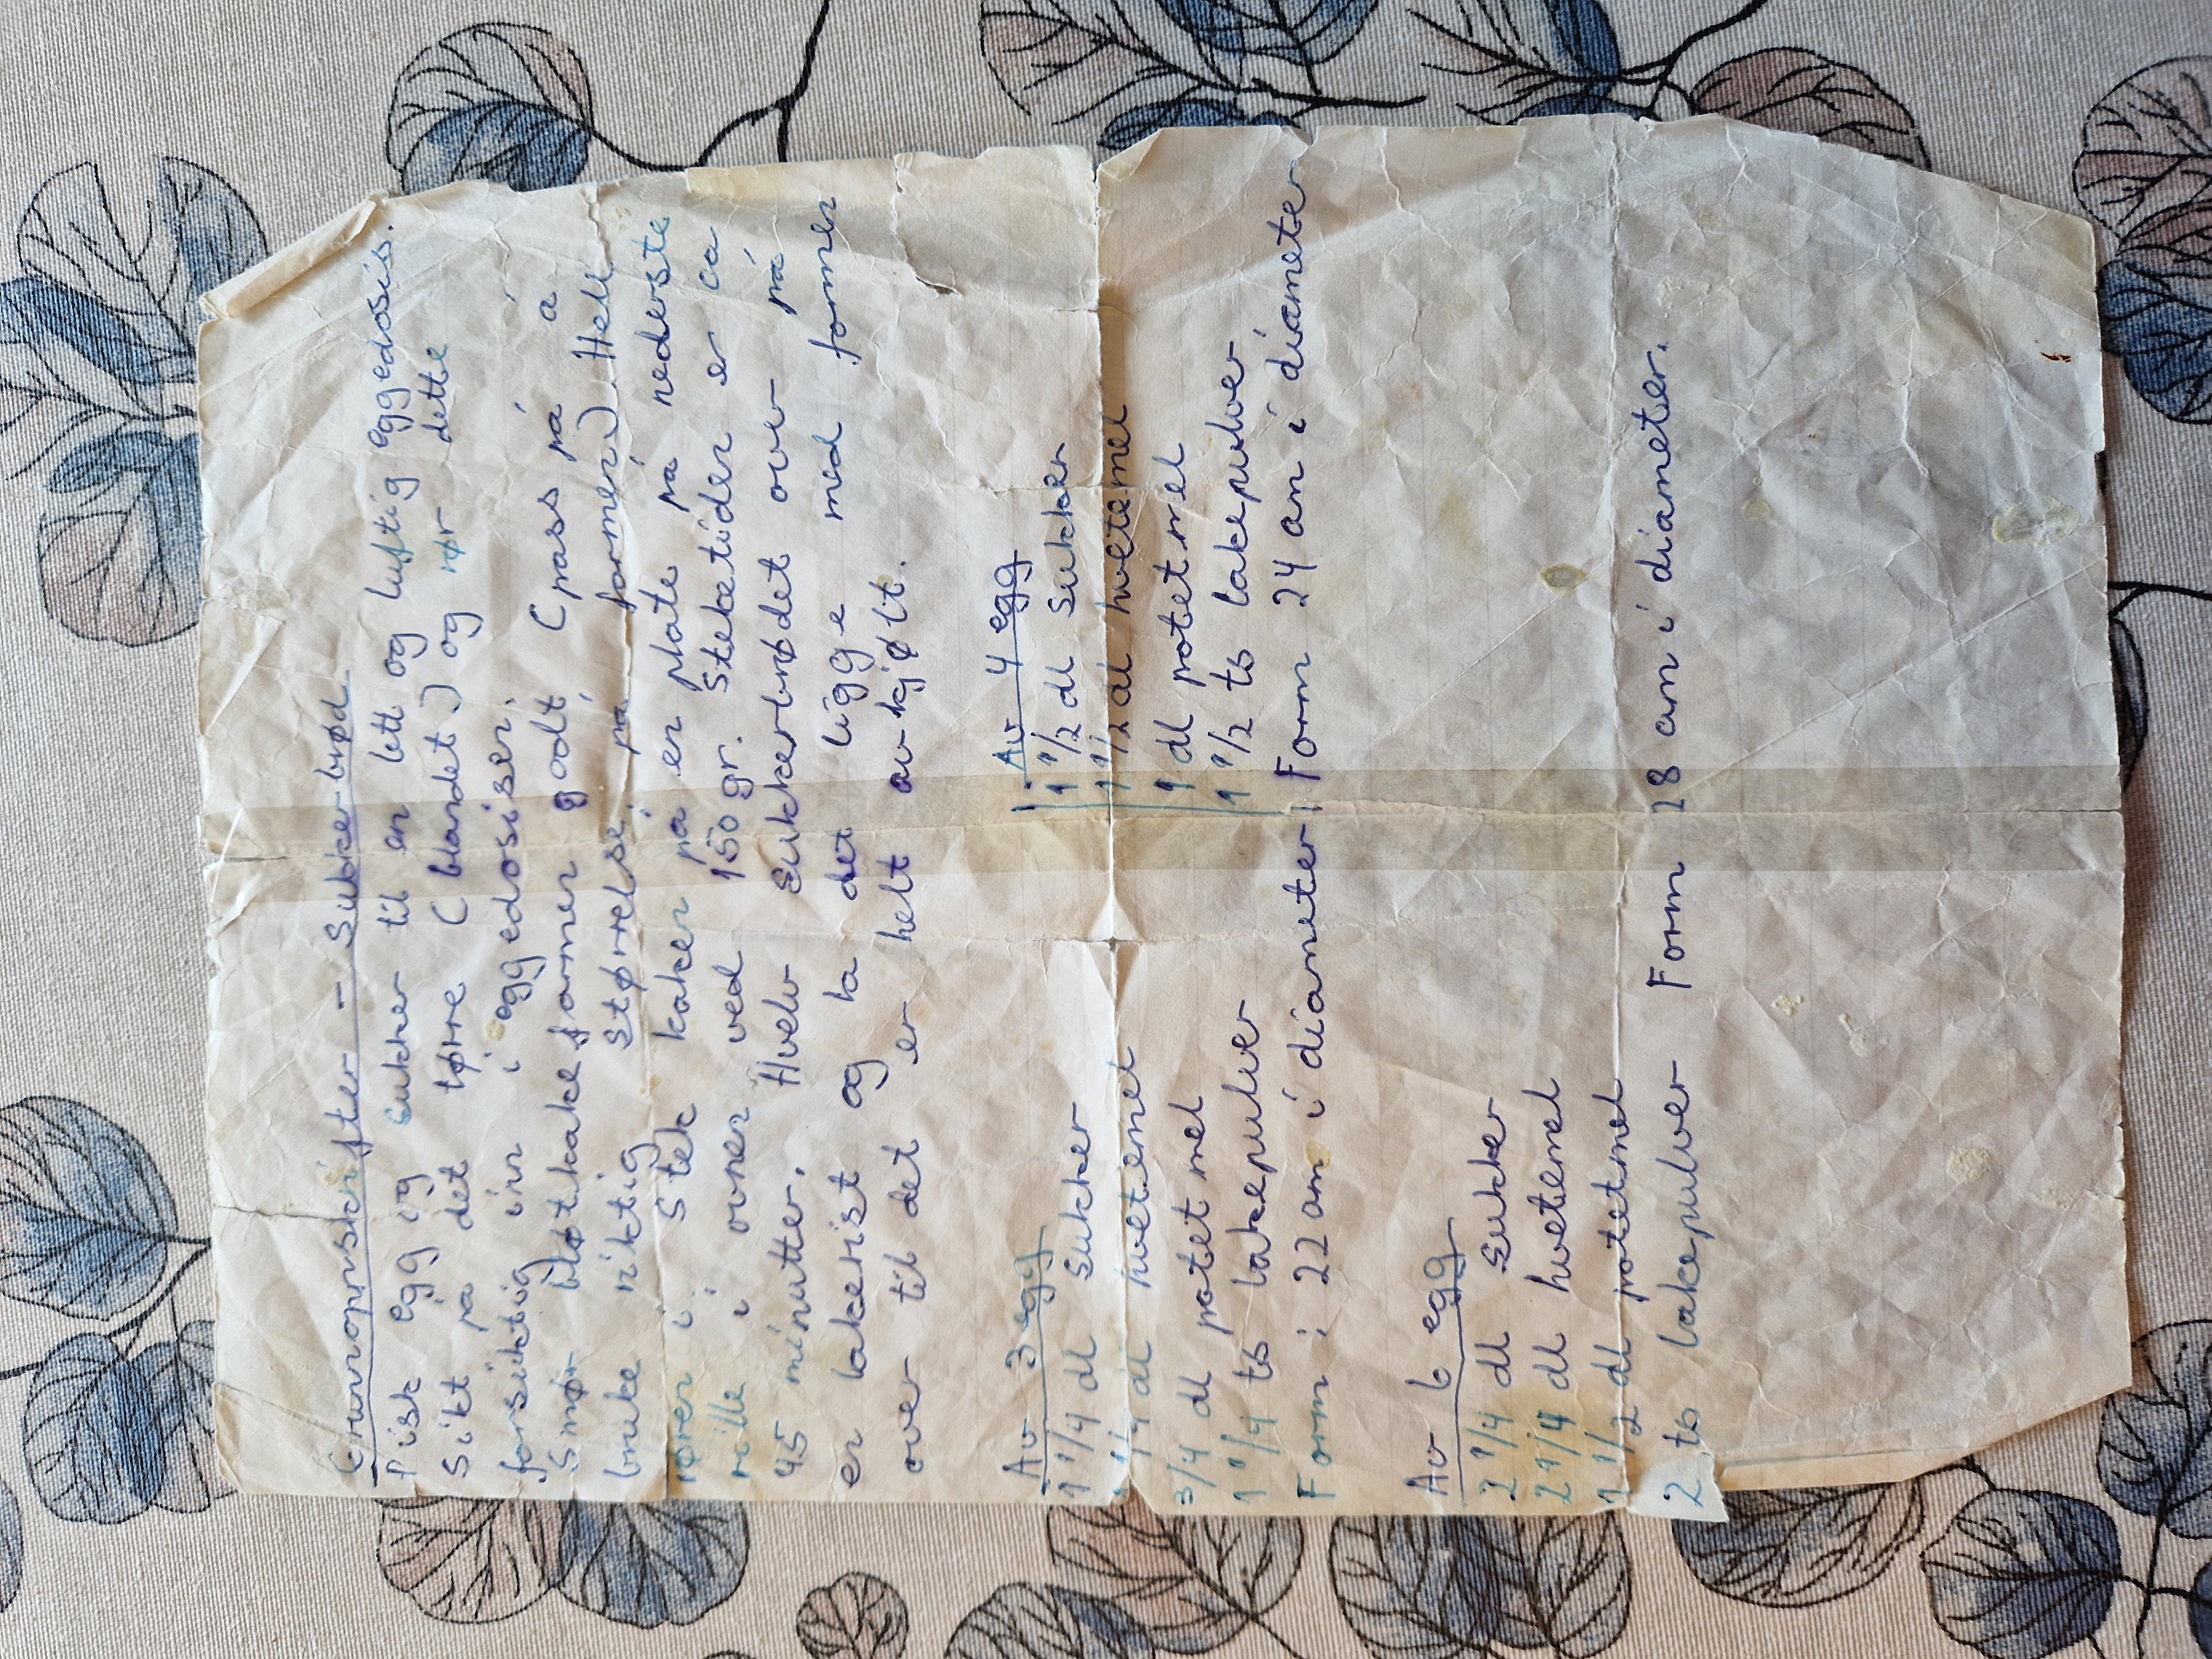 Grunnoppskrifter - Sukkerbrød
Pisk egg og sukker til en lett og luftig eggedosis.
Sikt på det tørre (blandet) og rør dette
forsiktig inn i eggedosisen.
Smør bløtkakeformen godt (pass på å
bruke riktig størrelse på formen). Hell
røren i. Stek kaken på en plate på nederste
rille i ovnen ved 150 gr. Steketiden er ca
45 minutter. Hvelv sukkerbrødet over på
en bakerist og la det ligge med formen
over til det er helt avkjølt.
Av 3 egg
1 1/4 dl sukker
1 1/4 dl hvetemel
3/4 dl potetmel
1 1/4 ts bakepulver
Form : 22 cm i diameter
Av 4 egg
1 1/2 dl sukker
1 1/2 dl hvetemel
1 dl potetmel
1 1/2 ts bakepulver
Form 24 cm i diameter
Av 6 egg
2 1/4 dl sukker
2 1/4 dl hvetemel
1 1/2 dl potetmel
2 ts bakepulver Form 28 cm i diameter.